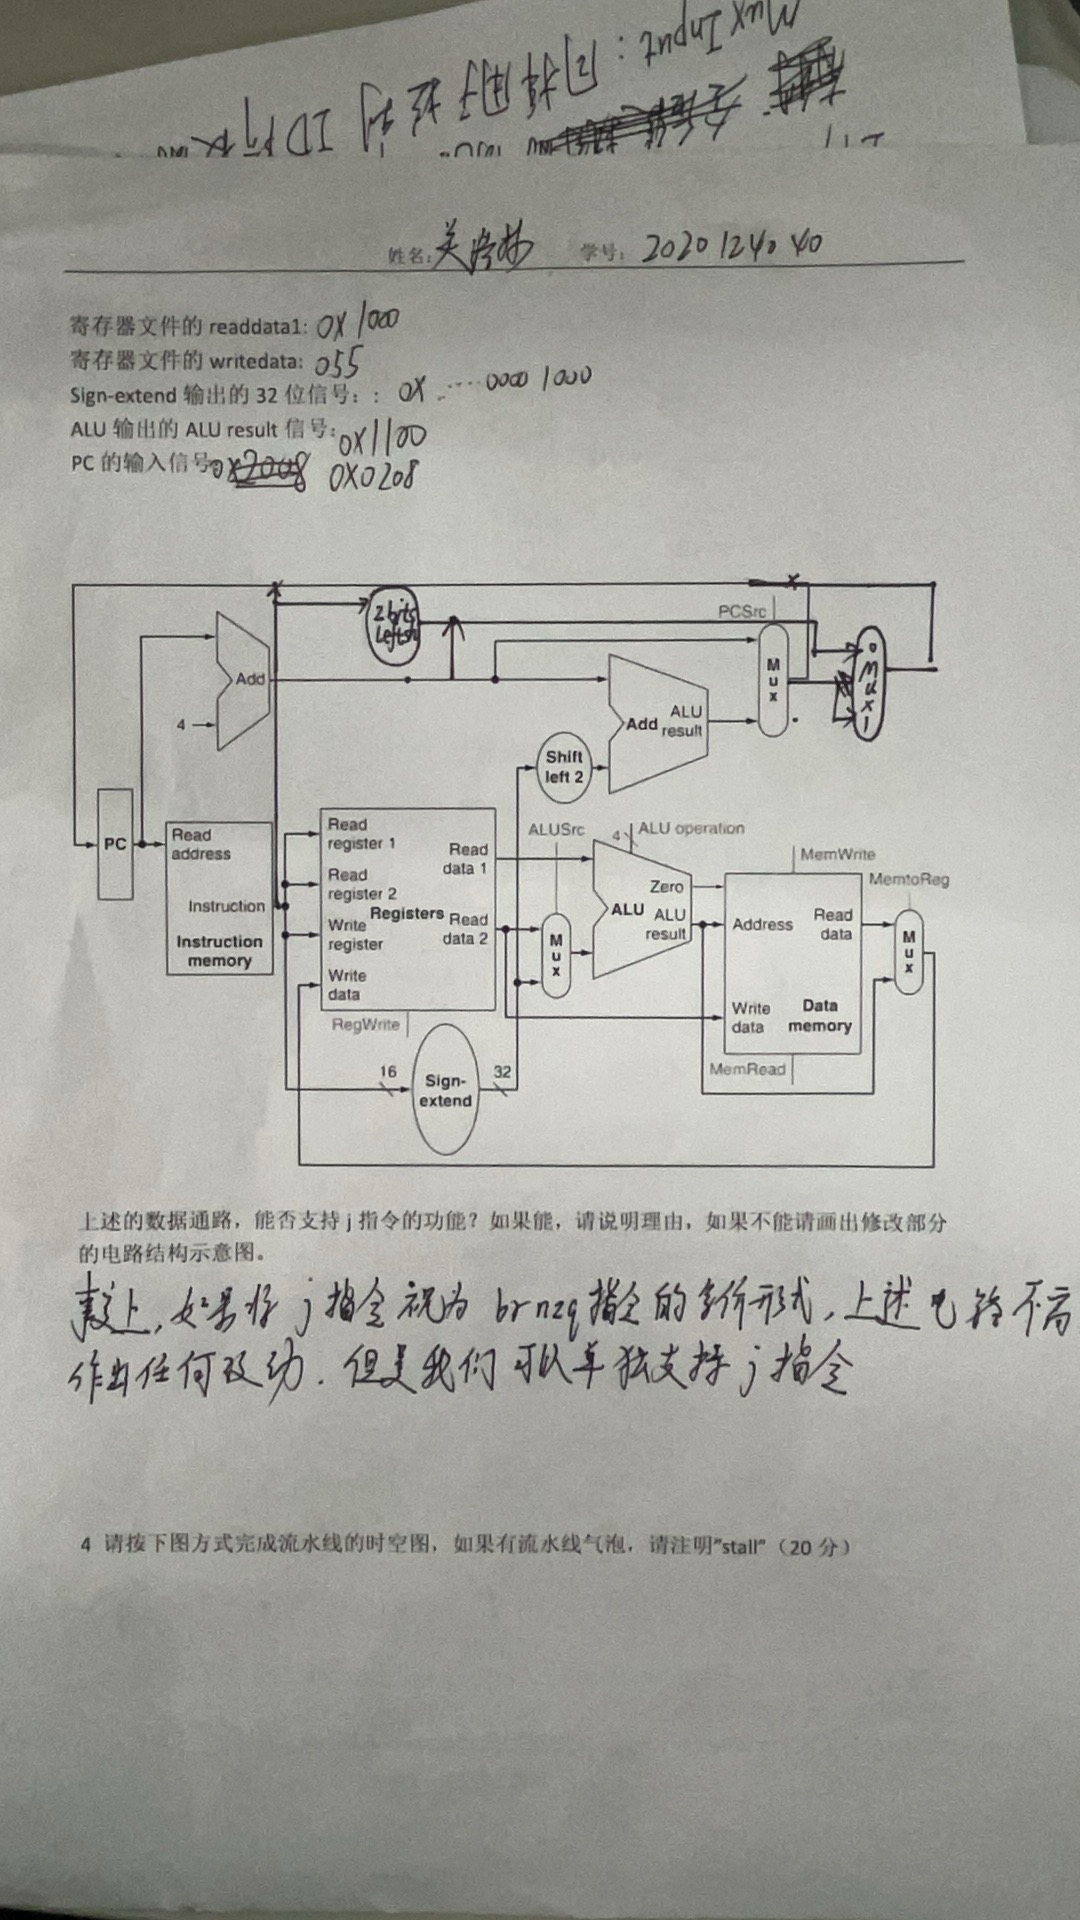 Mux Input: 同样用 控制 ID阶段
姓名: 学号: 2020124040
寄存器文件的 readdata1: 0X1000
寄存器文件的 writedata: 055
Sign-extend 输出的 32 位信号: : 0X ....0000 1000
ALU 输出的 ALU result 信号: 0X1100
PC 的输入信号: 0X0208
2 bits
Left
PCSrc
Add
4
Mux
0
Mux
1
Add ALU result
Shift left 2
PC
Read address
Instruction
Instruction memory
Read register 1
Read register 2
Write register
Write data
Registers
Read data 1
Read data 2
RegWrite
ALUSrc
4
ALU operation
Mux
Zero
ALU ALU result
MemWrite
MemtoReg
Address
Read data
Mux
Write data
Data memory
MemRead
16
Sign-extend
32
上述的数据通路，能否支持 j 指令的功能？如果能，请说明理由，如果不能请画出修改部分
的电路结构示意图。
事实上, 如果将 j 指令视为 brnzq 指令的等价形式, 上述电路不需
作出任何改动. 但是我们可以单独支持 j 指令
4 请按下图方式完成流水线的时空图，如果有流水线气泡，请注明"stall"（20 分）